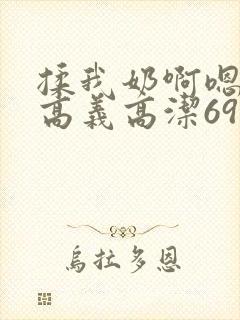 揉我奶啊嗯
高義高潔69
烏拉多恩